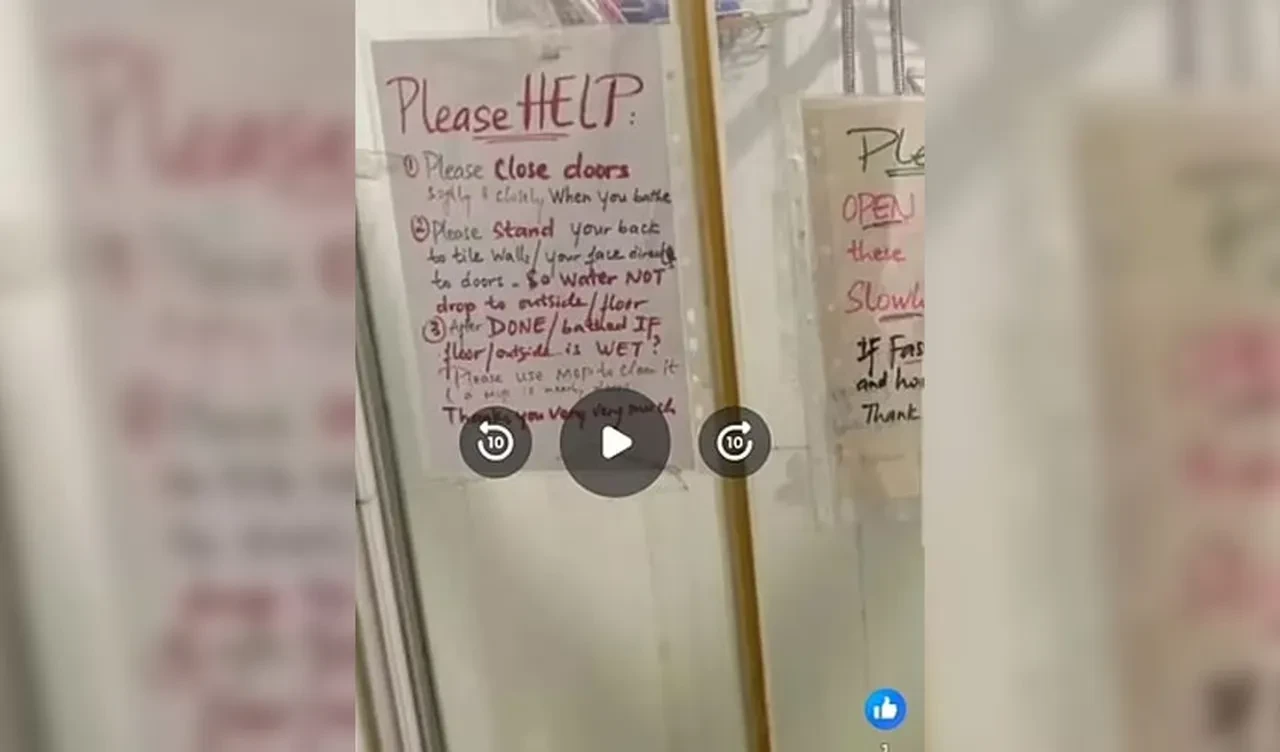 Please HELP:
① Please Close doors
& closely When you bathe
② Please Stand your back
to tile walls/your face direct
to doors. So Water NOT
drop to outside/floor
③ After DONE/bathed IF
floor/outside is WET?
Please use MOP to clean it
Thanks you Very very much
Ple
OPEN
these
Slowl
IF Fas
and ho
Thank
10
10
1